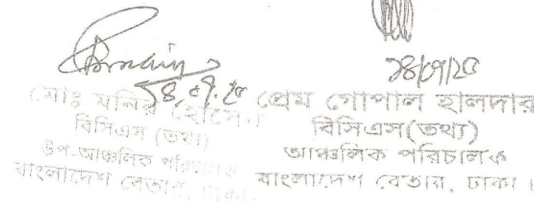 মোঃ মনির হোসেন
বিসিএস (তথ্য)
উপ-আঞ্চলিক পরিচালক
বাংলাদেশ বেতার, ঢাকা।
প্রেম গোপাল হালদার
বিসিএস(তথ্য)
আঞ্চলিক পরিচালক
বাংলাদেশ বেতার, ঢাকা।